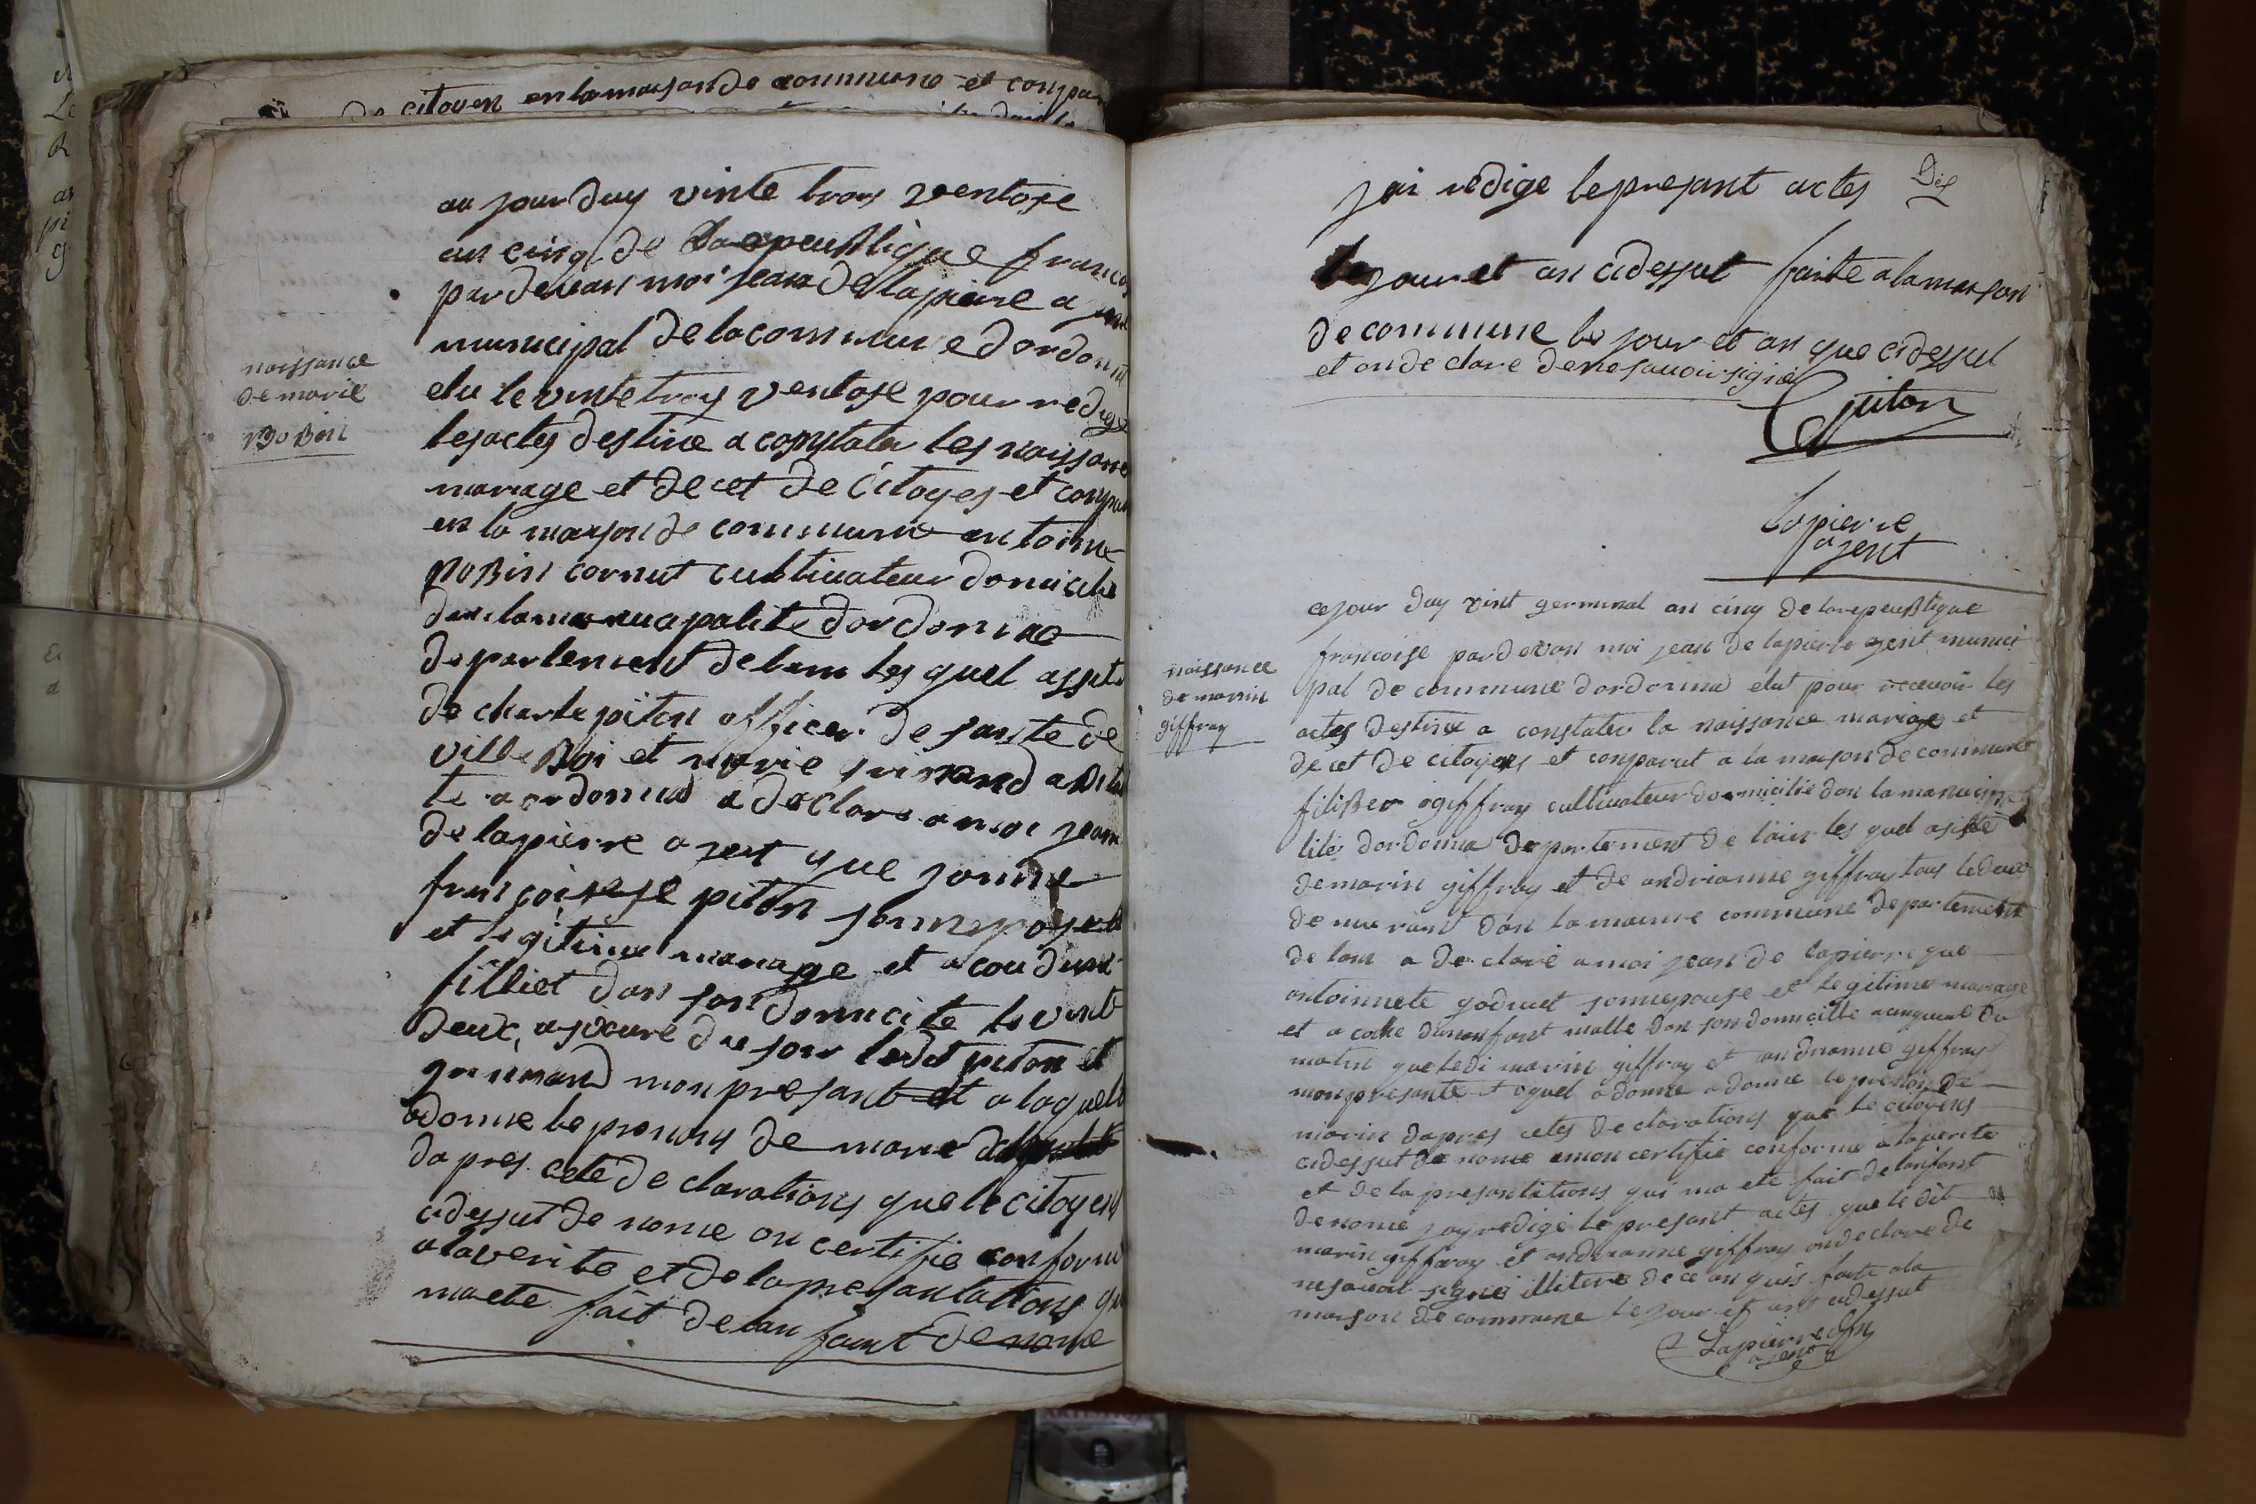 de citoyen en la maison de commune et conpar
au jour duy vinte troy ventose
an cinq de la repeublique francoi
par devan moi jean de lapierre a jent
municipal de la commune dordonna
elu le vinte troy ventose pour redige
les actes destine a constater les naissance
mariage et decet de Citoyes et conparu
en la maison de commune antoine
naissance
de marie
roBin
roBin cornut cultivateur domicile
dan la manucipalite dordonna
departement de lain les quel assite
de charle piton officer de sante de
ville Boi et marie grimand abita
te a ordonna a declare a moi jean
de lapierre a jent que jonne
francoise piton sonnepouse
et legitime mariage et acoudune
filliet dan son domicile le vint
deux, a jour ledit piton et
grimand mon presant et a laquele
adonne le prenom de marie
dapres cete declarations que le citoyens
cidessut denome on certifie conforme
a la verite et de la presantations qui
ma ete fait de lan fant denome
jai redige le presant actes
le jour et an cidessut faite a la maison
de commune le jour et an que cidessut
et on declare de ne savoir signe
piton
lapierre
ajent
naissance
de marin
giffray
ce jour duy vint germinal an cinq de la repeublique
francoise par devan moi jean de lapierre ajent munici
pal de commune dordonna elut pour recevoir les
actes destine a constater la naissance mariage et
decet de citoyens et conparut a la maison de commune
filiBer giffray cultivateur domicilie dan la manucipa
lite dordonna departement de lain les quel asiste
de marin giffray et de andrianne giffray tous le deux
demeurant dan la maime commune departement
de lain a declare a moi jean de lapierre que
antoinnete godmet sonnepouse et legitime mariage
et a couche dunanfant malle dan son domicille a cinqueure du
matin que ledi marin giffray et andrianne giffray
mon presante oquel a donne a donne le prenom de
marin dapres cetes declarations que le citoyens
cidessut denome on certifie conforme a la verite
et de la presantations qui ma ete fait de lanfant
denome jay redige le presant actes que ledit
marin giffray et andrianne giffray on declare de
ne savoir signe illitere de ce an quis faite a la
maison de commune le jour et an cidessut
Lapierre
ajent